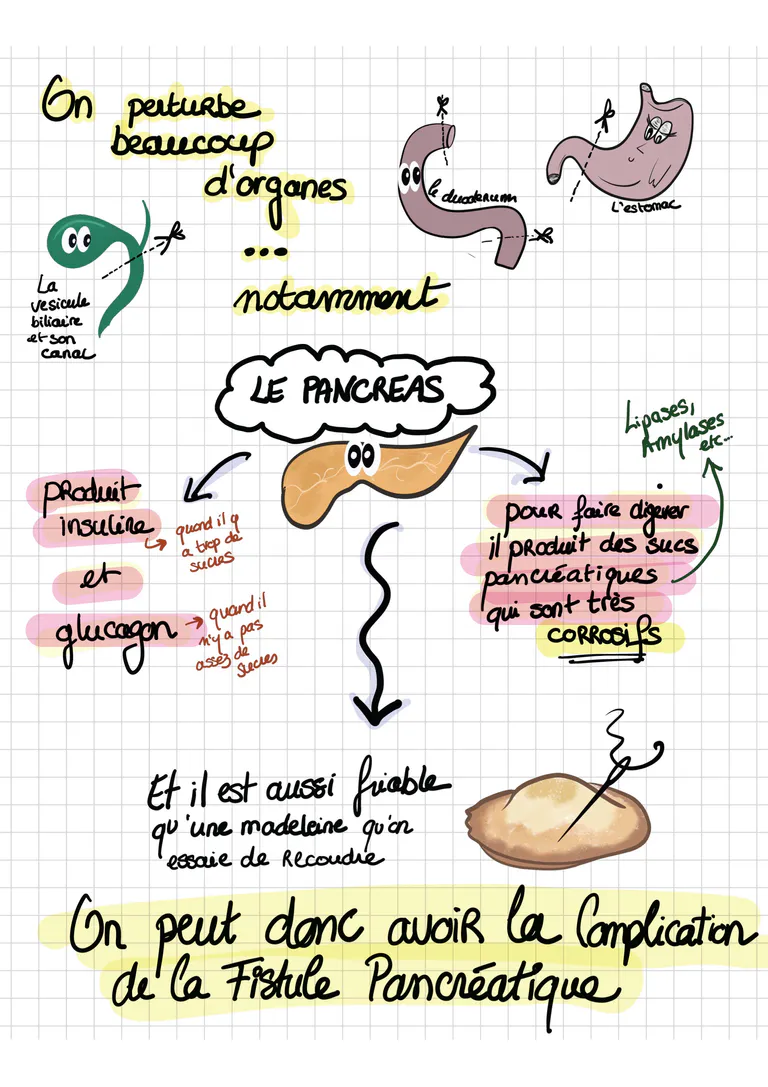 On perturbe
beaucoup
d'organes
...
notamment
le duodenum
L'estomac
La
vesicule
biliaire
et son
canal
LE PANCREAS
Lipases,
Amylases
etc...
produit
insuline
et
glucagon
quand il y
a trop de
sucres
quand il
n'y a pas
assez de
sucres
pour faire digérer
il produit des sucs
pancréatiques
qui sont très
corrosifs
Et il est aussi friable
qu'une madeleine qu'on
essaie de recoudre
On peut donc avoir la Complication
de la Fistule Pancréatique